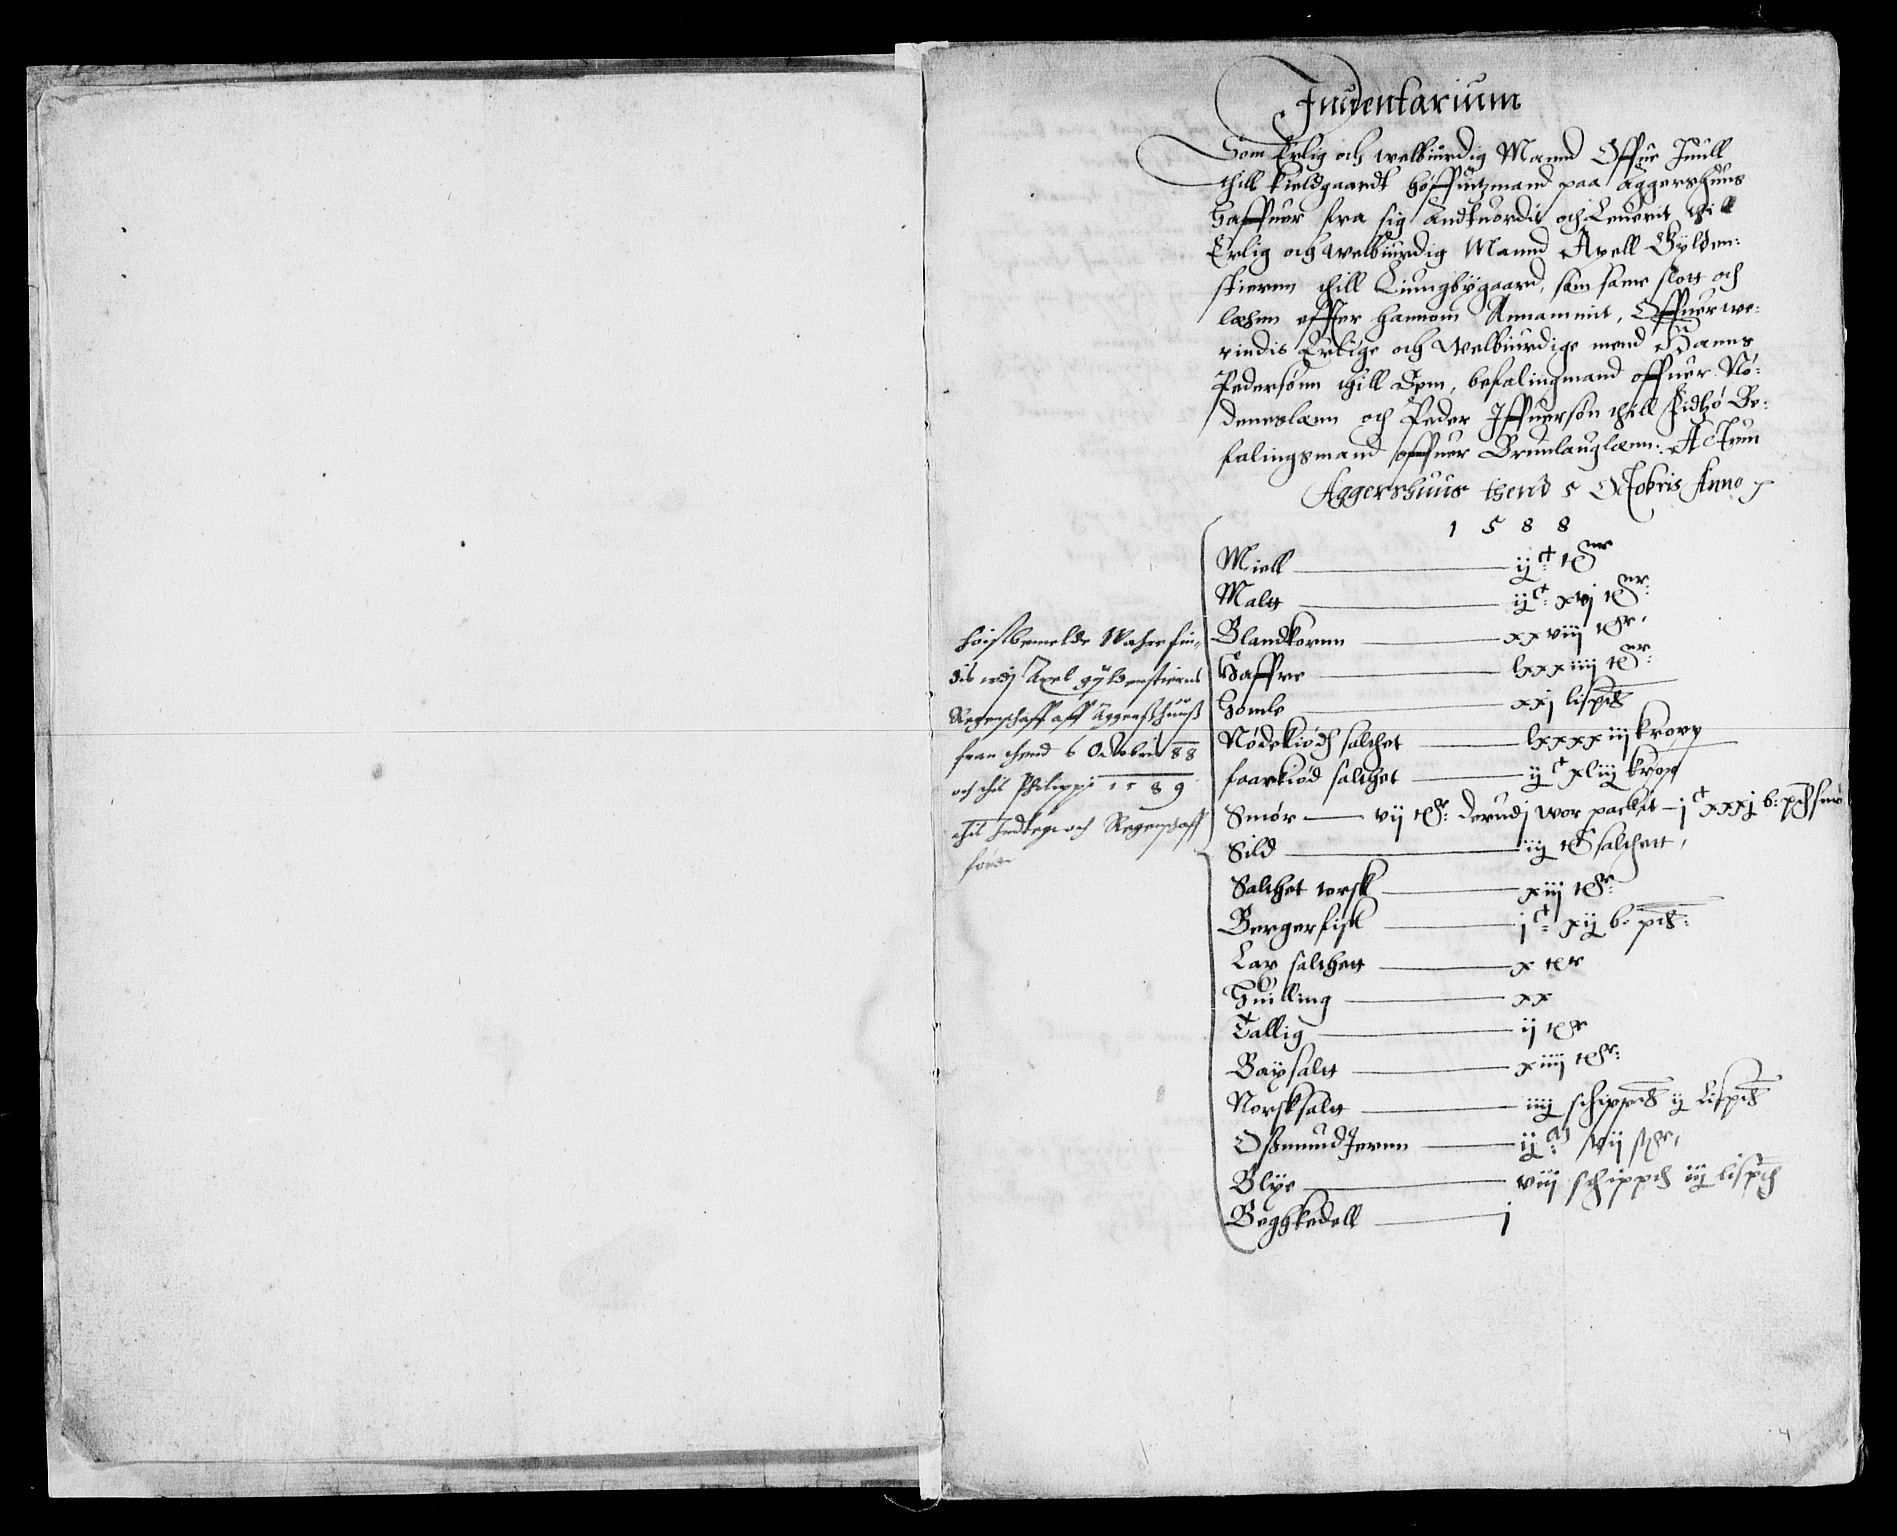 Inuentarium
Som Erlig och welbiurdig Mannd Offue Juull
thill Kieldgaardt höffuitzmand paa Aggershuus
Haffuer fra sig Andtuordit och Leuerit thill
Erlig och welbiurdig Mannd Axell Gylden:
stiernn thill Liungbygaard, som same slott och
læhen effter hannom Annammit, Offuerwe:
rindis Erlige och Welbiurdige mend Hanns
Pedersönn thill Sem, befalingmand offuer Nö:
deneslænn och Peder Iffuersön thill Fidtzö Be:
falingsmand offuer Brunlauglænn: Actum
Aggershuus thend 5 Octobris Anno
1 5 8 8
Miell — ijᶜ tdr
Maltt — ijᶜ xvj tdr:
Blandkornn — xxviij tdr,
Haffre — lxxxiiij tdr:
Homle — xxj lispd
Nödekiödh salthet — lxxxxiij kropp
faarkiöd salthet — ijᶜ xliij kropp
Smör — vij tdr: derudj wor packit — jᶜ xxxj b: pd smör
Sild — iij td salthett,
Salthet torsk — xiij tdr:
Bergerfisk — jᶜ xij b: pd:
Lax salthett — x tdr
Huilling — xx
Tallig — ij tdr
Baysaltt — xiiij tdr:
Norsksaltt — iiij schippd ij Lispd
Osmund Jernn — ijᵐ vij
Blye — viij schippd iij lispd
Beghkedell — j
höistbemelde Wahre fin:
dis udj Axel gyldenstierns
Regenschaff aff Aggershuuss
fran thend 6 Octobris 88
och thil Philippi 1589
thil Indtegt och Regenschaff
förd